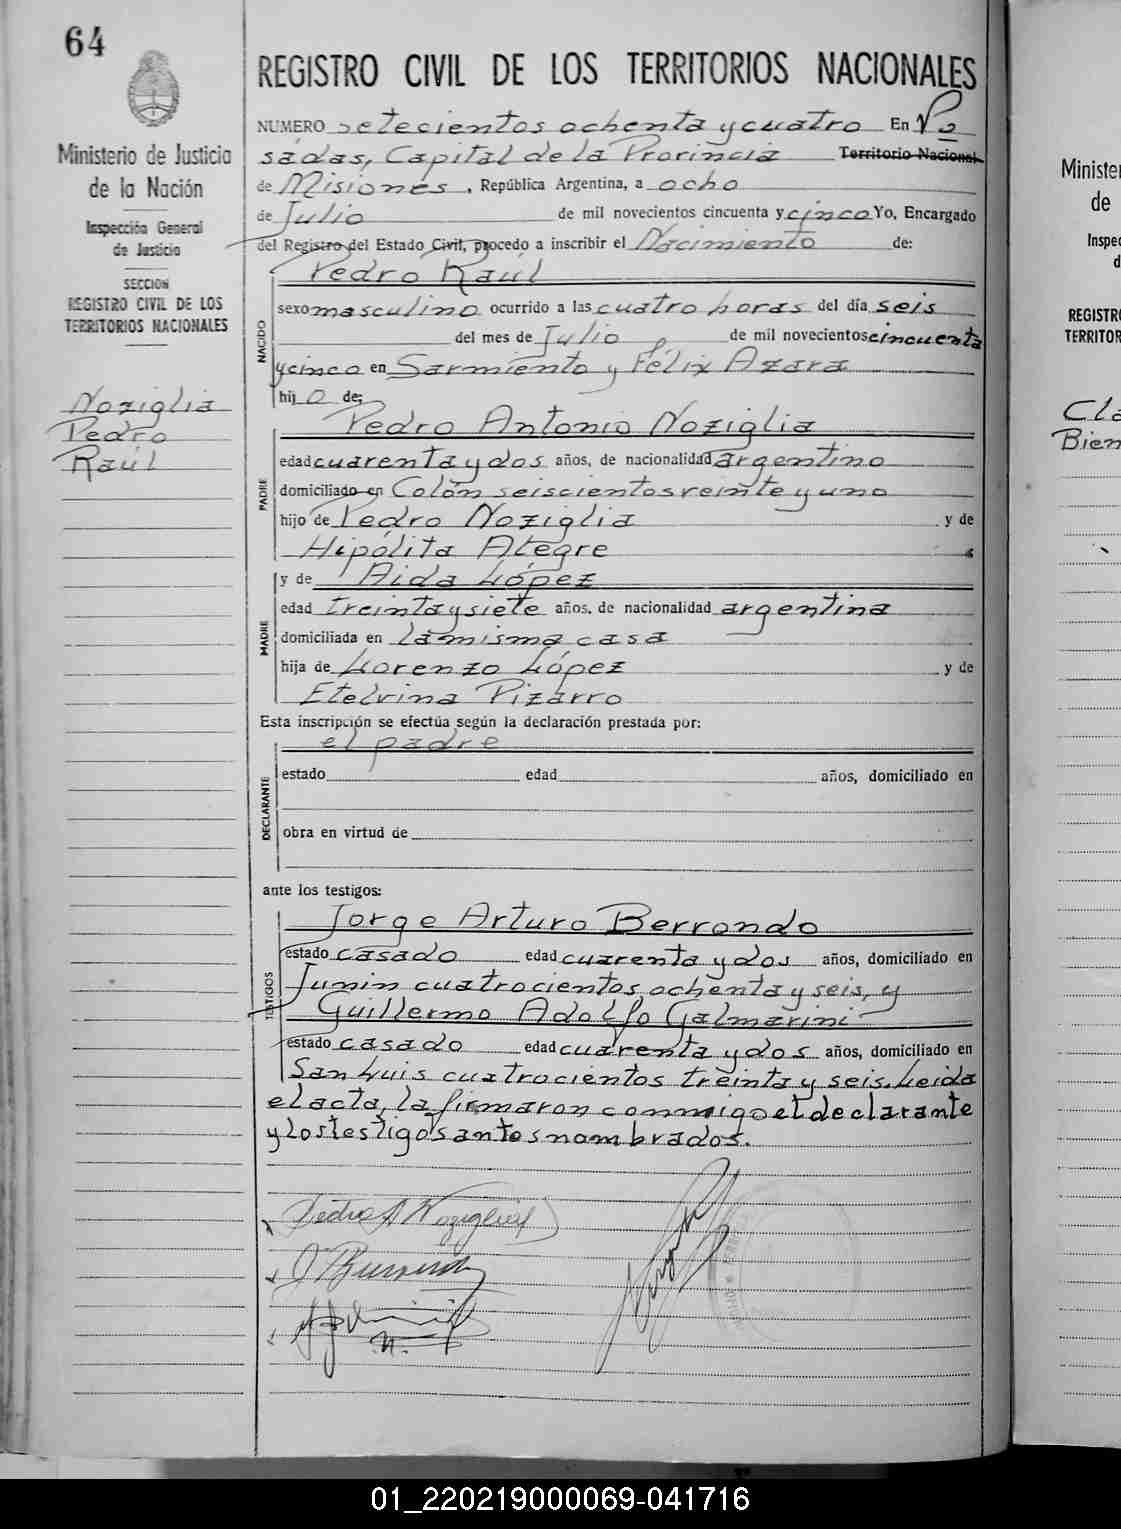 64
Ministerio de Justicia
de la Nación
Inspección General
de Justicia
SECCION
REGISTRO CIVIL DE LOS
TERRITORIOS NACIONALES
Noziglia
Pedro
Raúl
REGISTRO CIVIL DE LOS TERRITORIOS NACIONALES
NUMERO setecientos ochenta y cuatro En Po
sadas, Capital de la Provincia Territorio Nacional
de Misiones, República Argentina, a ocho
de Julio de mil novecientos cincuenta y cinco Yo, Encargado
del Registro del Estado Civil, procedo a inscribir el Nacimiento de:
Pedro Raúl
NACIDO
sexo masculino ocurrido a las cuatro horas del día seis
del mes de Julio de mil novecientos cincuenta
y cinco en Sarmiento y Félix Azara
hijo de;
Pedro Antonio Noziglia
PADRE
edad cuarenta y dos años, de nacionalidad argentino
domiciliado en Colón seiscientos veinte y uno
hijo de Pedro Noziglia y de
Hipólita Alegre
y de Aida López
MADRE
edad treinta y siete años, de nacionalidad argentina
domiciliada en la misma casa
hija de Lorenzo López y de
Etelvina Pizarro
Esta inscripción se efectúa según la declaración prestada por:
el padre
DECLARANTE
estado edad años, domiciliado en
obra en virtud de
ante los testigos:
Jorge Arturo Berrondo
TESTIGOS
estado casado edad cuarenta y dos años, domiciliado en
Junin cuatrocientos ochenta y seis, y
Guillermo Adolfo Galmarini
estado casado edad cuarenta y dos años, domiciliado en
San Luis cuatrocientos treinta y seis. Leida
el acta, la firmaron conmigo el declarante
y los testigos antes nombrados.
Pedro A Noziglia
Ministe
de
Inspec
d
REGISTR
TERRITOR
Cla
Bien
01_220219000069-041716